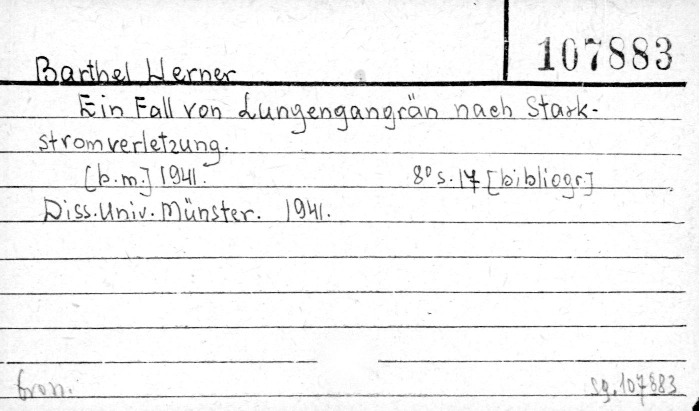 107883
Barthel Werner
Ein Fall von Lungengangrän nach Stark-
stromverletzung.
[b.m.] 1941. 8° s. 17 [bibliogr.]
Diss. Univ. Münster. 1941.
bron. sg. 107883